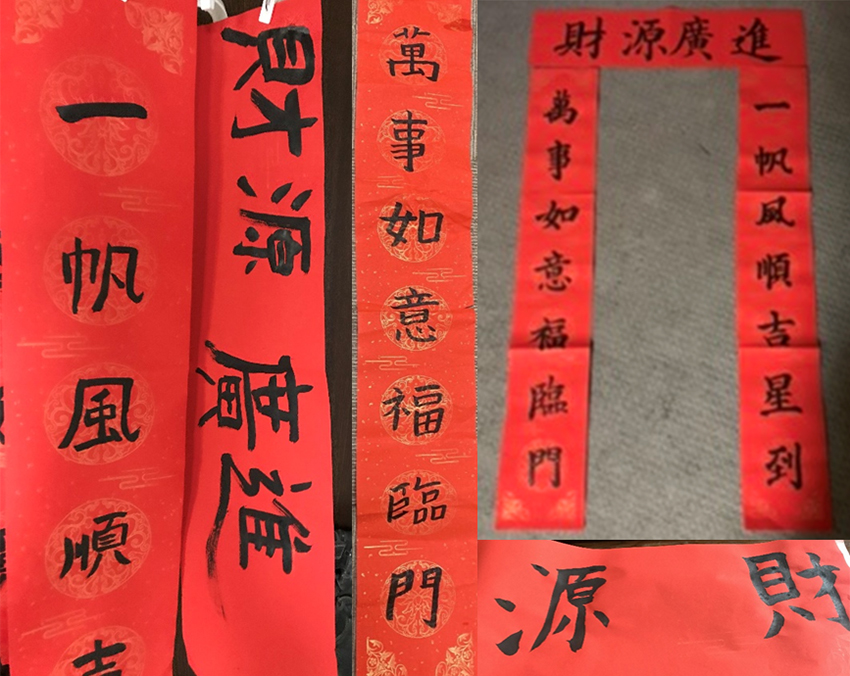 一帆風順吉
財源廣進
萬事如意福臨門
財源廣進
一帆風順吉星到
萬事如意福臨門
財源